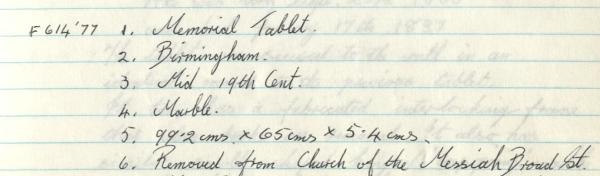 F614'77 1. Memorial Tablet.
2. Birmingham.
3. Mid 19th Cent.
4. Marble.
5. 99.2 cms. x 65 cms x 5.4 cms.
6. Removed from Church of the Messiah Broad St.